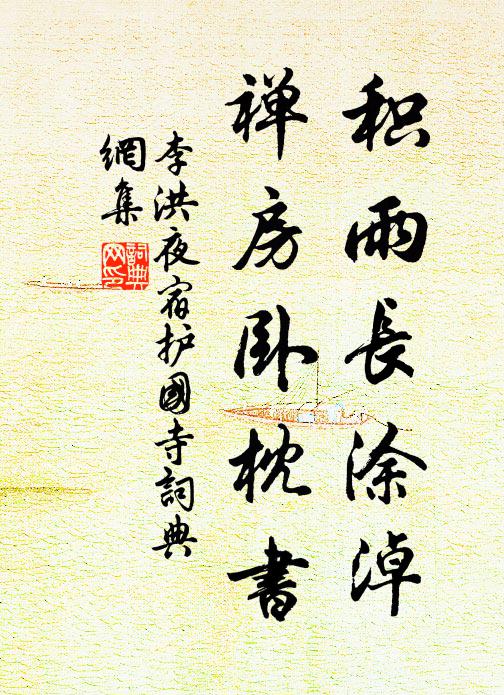 积雨長涂淖
禅房卧枕書
李洪夜宿护國寺詞典
網集
詞典
网印